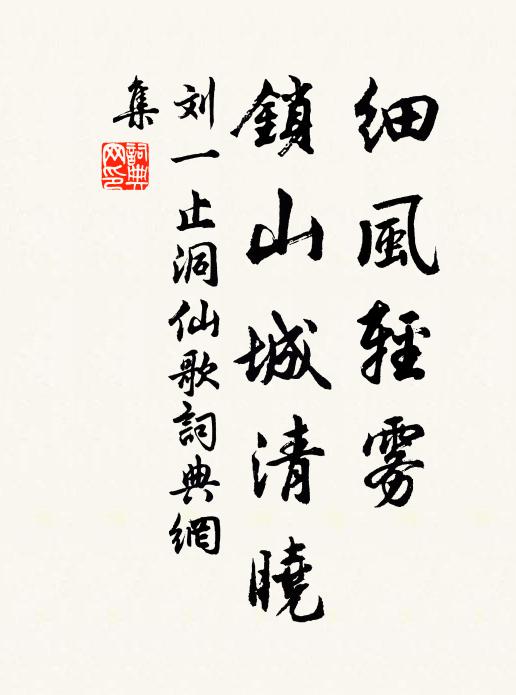 細風輕雾
鎖山城清曉
刘一止洞仙歌詞典網
集
詞典网印